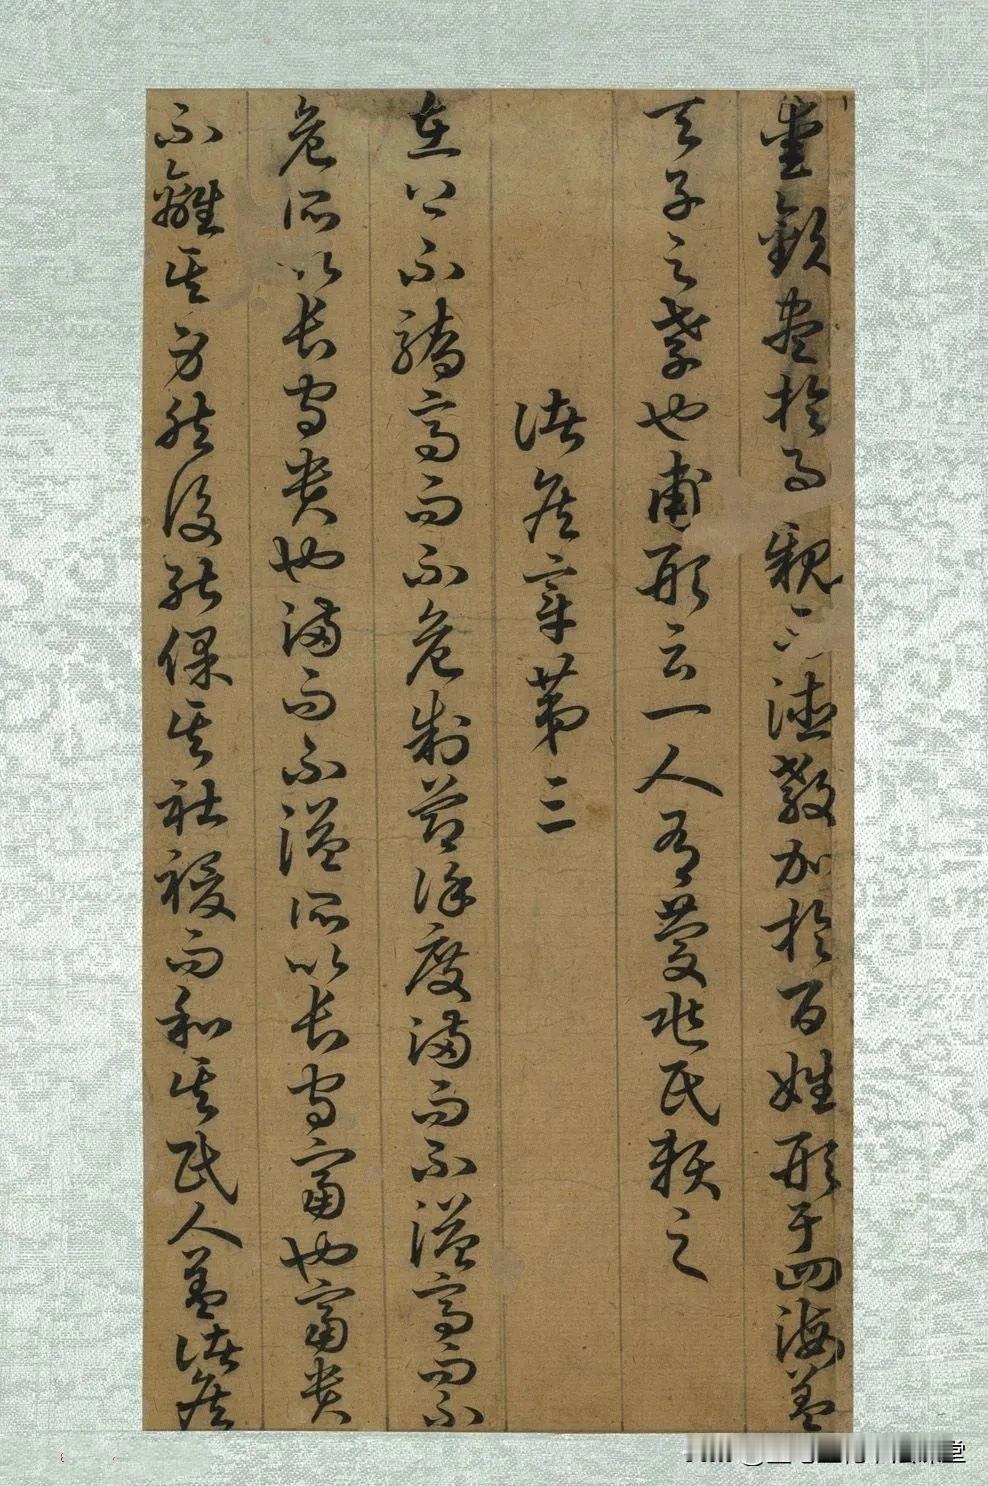 愛敬盡於事親而德教加於百姓形于四海蓋
天子之孝也甫形云一人有慶兆民賴之
諸侯章第三
在上不驕高而不危制節謹度滿而不溢高而不
危所以長守貴也滿而不溢所以長守富也富貴
不離其身然後能保其社稷而和其民人蓋諸侯